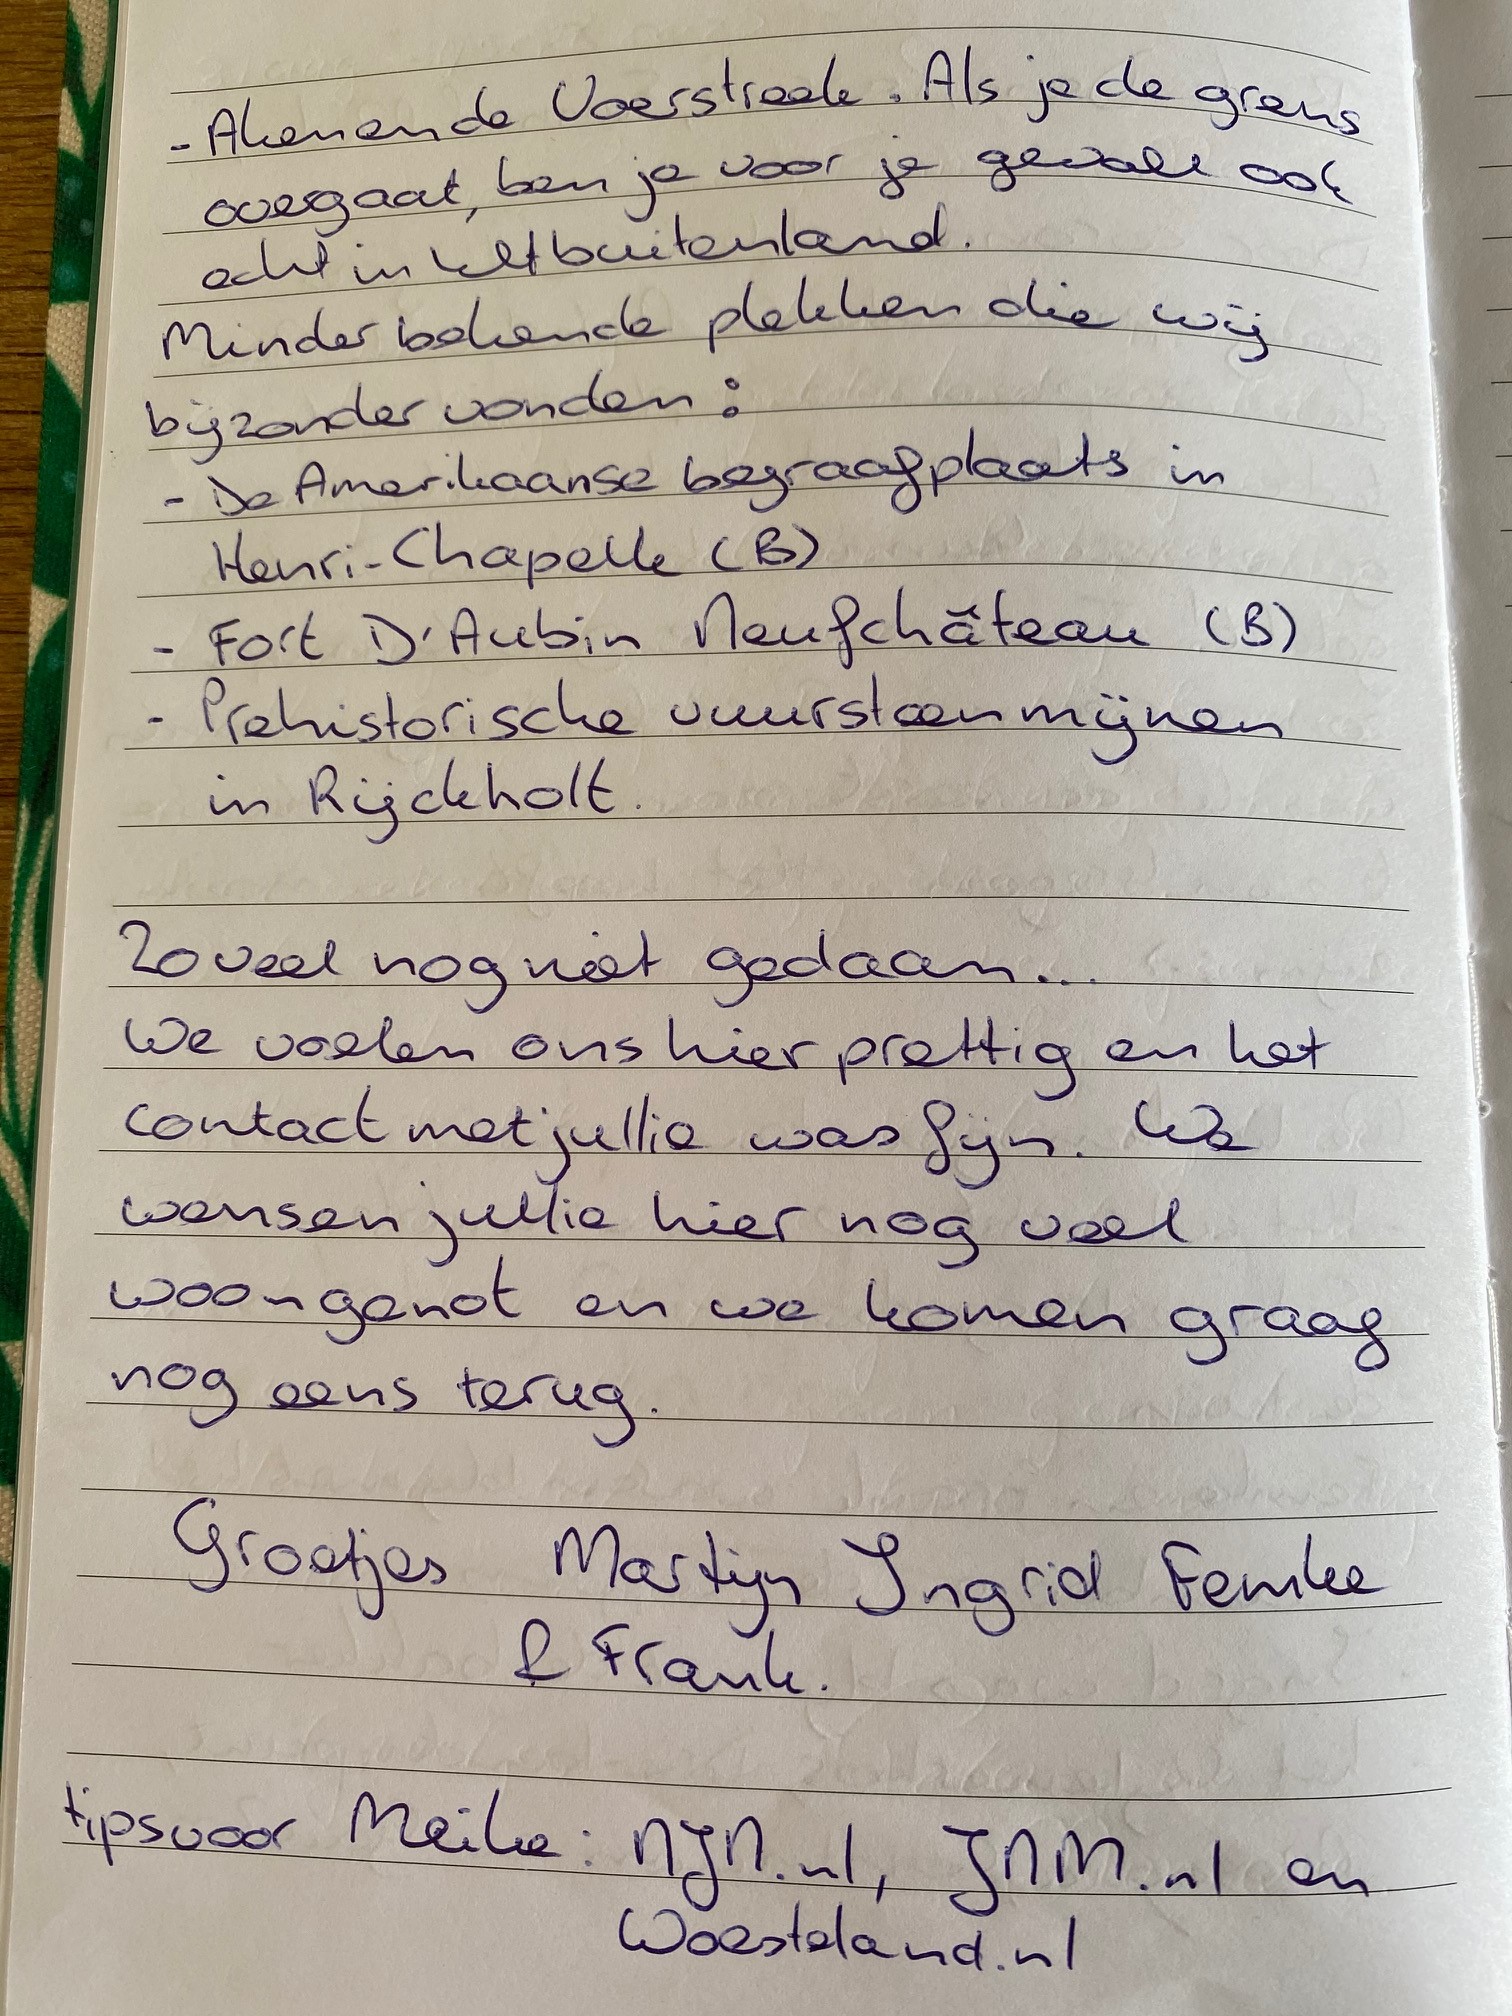 - Aken en de Voerstreek. Als je de grens
overgaat, ben je voor je gevoel ook
echt in het buitenland.
Minder bekende plekken die wij
bijzonder vonden:
- De Amerikaanse begraafplaats in
Henri-Chapelle (B)
- Fort D'Aubin Neufchâteau (B)
- Prehistorische vuursteenmijnen
in Rijckholt.
Zoveel nog niet gedaan...
We voelen ons hier prettig en het
contact met jullie was fijn. We
wensen jullie hier nog veel
woongenot en we komen graag
nog eens terug.
Groetjes Martijn Ingrid Femke
& Frank.
tips voor Meike: NJN.nl, JNM.nl en
Woesteland.nl